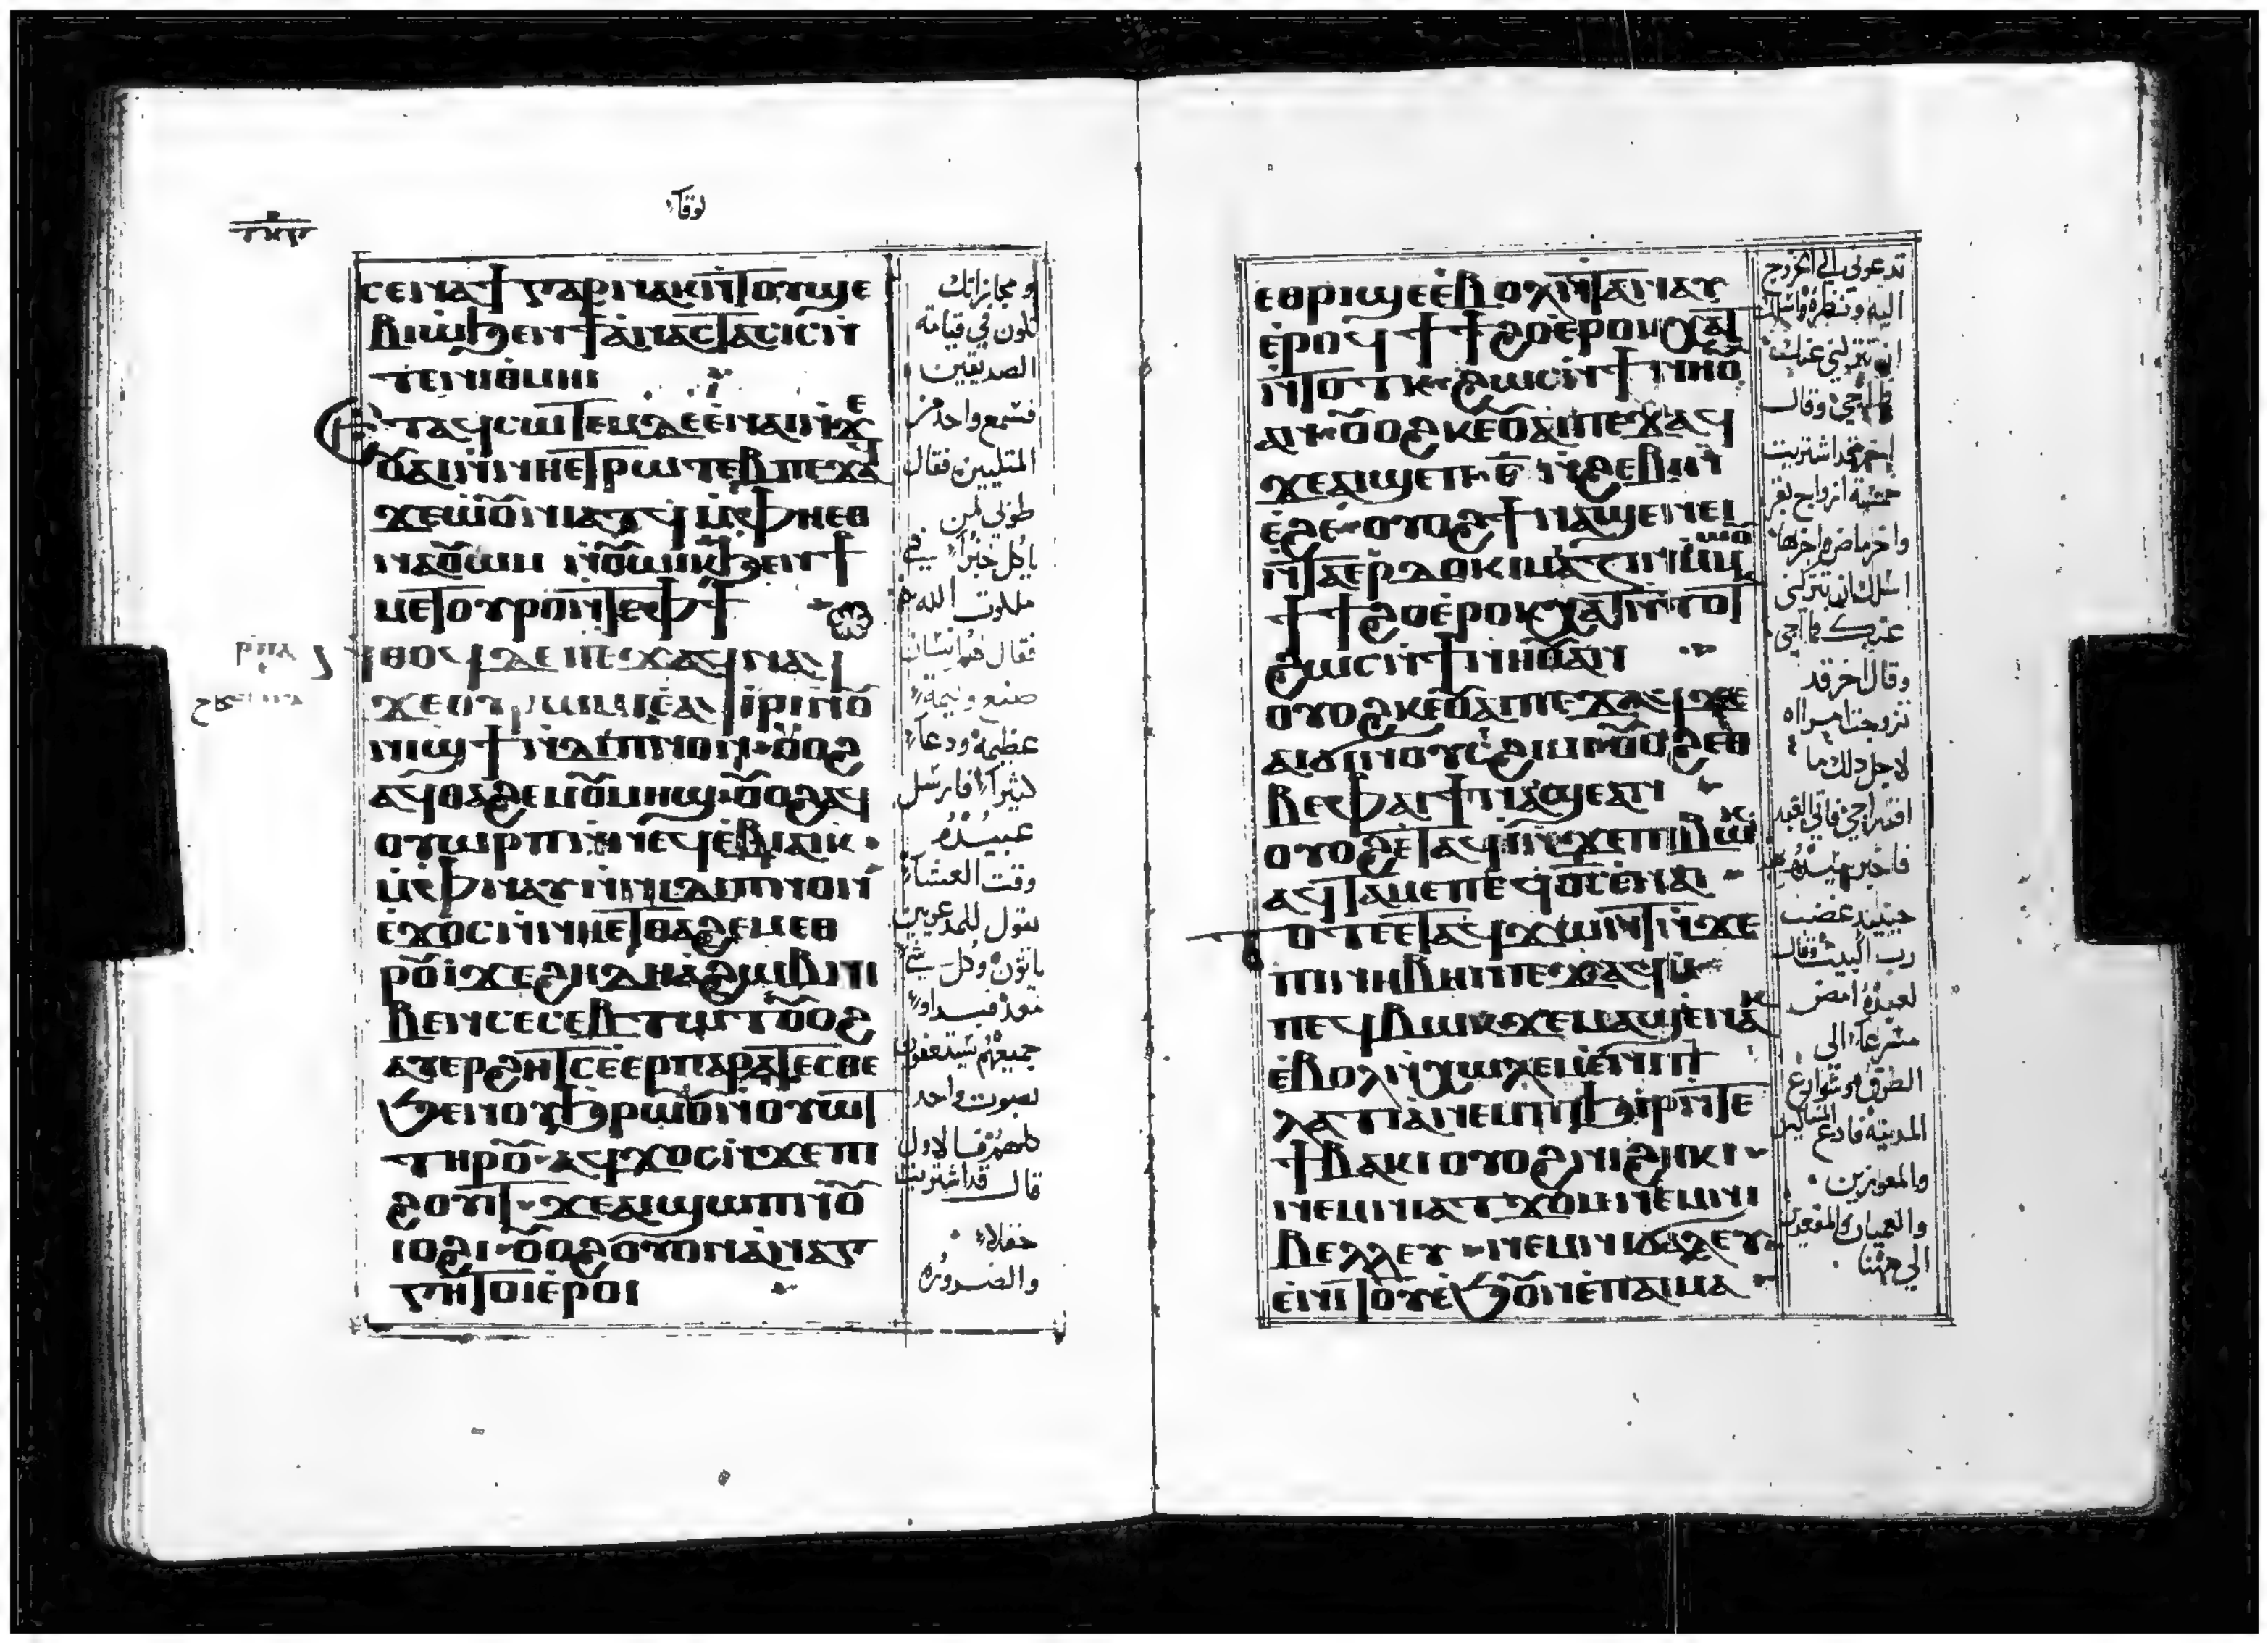 لوقا
ⲥⲉⲛⲁϯ ⲅⲁⲣ ⲛⲁⲕ ⲛ̀ⲧⲟⲩϣⲉ
ⲃⲓⲱ ϧⲉⲛ ϯⲁⲛⲁⲥⲧⲁⲥⲓⲥ ⲛ̀
ⲧⲉⲛⲓⲑⲙⲏⲓ
ⲉⲧⲁϥⲥⲱⲧⲉⲙ ⲇⲉ ⲉⲛⲁⲓ ⲛ̀ϫⲉ
ⲟⲩⲁⲓ ⲛ̀ⲛⲏⲉⲧⲣⲱⲧⲉⲃ ⲡⲉϫⲁϥ
ϫⲉ ⲱⲟⲩⲛⲓⲁⲧϥ ⲙ̀ⲫⲏⲉⲑ
ⲛⲁⲟⲩⲱⲙ ⲛ̀ⲟⲩⲱⲓⲕ ϧⲉⲛ ϯ
ⲙⲉⲧⲟⲩⲣⲟ ⲛ̀ⲧⲉ ⲫϯ
ⲛⲑⲟϥ ⲇⲉ ⲡⲉϫⲁϥ ⲛⲁϥ
ϫⲉ ⲟⲩⲣⲱⲙⲓ ⲉⲁϥⲓⲣⲓ ⲛ̀ⲟⲩ
ⲛⲓϣϯ ⲛ̀ⲇⲓⲡⲛⲟⲛ ⲟⲩⲟϩ
ⲁϥⲑⲁϩⲉⲙ ⲟⲩⲙⲏϣ ⲟⲩⲟϩ ⲁϥ
ⲟⲩⲱⲣⲡ ⲛ̀ⲛⲉϥⲉⲃⲓⲁⲓⲕ
ⲙ̀ⲫⲛⲁⲩ ⲙ̀ⲡⲓⲇⲓⲡⲛⲟⲛ
ⲉϫⲟⲥ ⲛ̀ⲛⲏⲉⲧⲑⲁϩⲉⲙ ⲉⲑ
ⲣⲟⲩⲓ ϫⲉ ϩⲏⲇⲏ ⲁϩⲱⲃ ⲛⲓ
ⲃⲉⲛ ⲥⲉⲥⲉⲃⲧⲱⲧ ⲟⲩⲟϩ
ⲁⲩⲉⲣϩⲏⲧⲥ ⲉⲉⲣⲡⲁⲣⲁⲧⲉⲥⲑⲉ
ϧⲉⲛ ⲟⲩϧⲣⲱⲟⲩ ⲛ̀ⲟⲩⲱⲧ
ⲧⲏⲣⲟⲩ ⲁϥϫⲟⲥ ⲛ̀ϫⲉ ⲡⲓ
ϩⲟⲩⲓⲧ ϫⲉ ⲁⲓϣⲱⲡ ⲛ̀ⲟⲩ
ⲓⲟϩⲓ ⲟⲩⲟϩ ⲟⲩⲟⲛ ⲁⲛⲁⲅ
ⲅⲏ ⲧⲟⲓ ⲉⲣⲟⲓ
ومجازاتك
تكون في قيامة
الصديقين
فسمع واحد من
المتكيين فقال
طوبي لمن
ياكل خبزا في
ملكوت الله
فقال له انسان
صنع وليمة
عظيمة ودعا
كثيرا فارسل
عبيده
وقت العشا
يقول للمدعويين
ياتون وكل شي
معد فبداو
جميعهم يستعفون
بصوت واحد
كلهم فالاول
قال قد اشتريت
حقلا
والضرورة
ⲉⲑⲣⲓϣⲉ ⲉⲃⲟⲗ ⲛ̀ⲧⲁⲛⲁⲩ
ⲉⲣⲟϥ ϯϯϩⲟ ⲉⲣⲟⲕ ⲭⲁⲧ
ⲛ̀ⲧⲟⲧⲕ ϩⲱⲥ ⲛ̀ϯⲛⲏⲟⲩ
ⲁⲛ ⲟⲩⲟϩ ⲕⲉⲟⲩⲁⲓ ⲡⲉϫⲁϥ
ϫⲉ ⲁⲓϣⲉⲡ ⲉ̄ ⲛ̀ϩⲉⲃⲓ ⲛ̀
ⲉϩⲉ ⲟⲩⲟϩ ϯⲛⲁϣⲉⲛⲏⲓ
ⲛ̀ⲧⲁⲉⲣⲇⲟⲕⲓⲙⲁⲍⲓⲛ ⲙ̀ⲙⲱⲟⲩ
ϯϯϩⲟ ⲉⲣⲟⲕ ⲭⲁⲧ ⲛ̀ⲧⲟⲧⲕ
ϩⲱⲥ ⲛ̀ϯⲛⲏⲟⲩ ⲁⲛ
ⲟⲩⲟϩ ⲕⲉⲟⲩⲁⲓ ⲡⲉϫⲁϥ ϫⲉ
ⲁⲓϭⲓ ⲛ̀ⲟⲩⲥϩⲓⲙⲓ ⲟⲩⲟϩ ⲉⲑ
ⲃⲉ ⲫⲁⲓ ϯⲛⲁϣⲓ ⲁⲛ
ⲟⲩⲟϩ ⲉⲧⲁϥⲓ ⲛ̀ϫⲉ ⲡⲓⲃⲱⲕ
ⲁϥⲧⲁⲙⲉ ⲡⲉϥⲟⲥ ⲉⲛⲁⲓ
ⲧⲟⲧⲉ ⲉⲧⲁϥϫⲱⲛⲧ ⲛ̀ϫⲉ
ⲡⲓⲛⲏⲃⲏⲓ ⲡⲉϫⲁϥ ⲙ̀
ⲡⲉϥⲃⲱⲕ ϫⲉ ⲙⲁϣⲉⲛⲁⲕ
ⲉⲃⲟⲗ ⲛ̀ⲭⲱⲗⲉⲙ ⲉⲛⲓⲡ
ⲗⲁⲧⲓⲁ ⲛⲉⲙ ⲛⲓϧⲓⲣ ⲛ̀ⲧⲉ
ϯⲃⲁⲕⲓ ⲟⲩⲟϩ ⲛⲓϩⲏⲕⲓ
ⲛⲉⲙ ⲛⲓⲁⲧϫⲟⲙ ⲛⲉⲙ ⲛⲓ
ⲃⲉⲗⲗⲉⲩ ⲛⲉⲙ ⲛⲓϭⲁⲗⲉⲩ
ⲁⲛⲓⲧⲟⲩ ⲉϧⲟⲩⲛ ⲉⲡⲁⲓⲙⲁ
تدعوني الي الخروج
اليه ونظره فاسلك
ان تتركني عندك
فما اجي وقال
اخر قد اشتريت
خمسة ازواج بقر
وانا ماض اجربها
اسلك ان تتركني
عندك فما اجي
وقال اخر قد
تزوجت امراه
لاجل ذلك ما
اقدر اجي فاتي العبد
فاخبر سيده بهذا
حينيذ غضب
رب البيت وقال
لعبده امض
مسرعا الي
الطرق وشوارع
المدينة فادع المساكين
والمعوزين
والعميان والمقعدين
الي ههنا